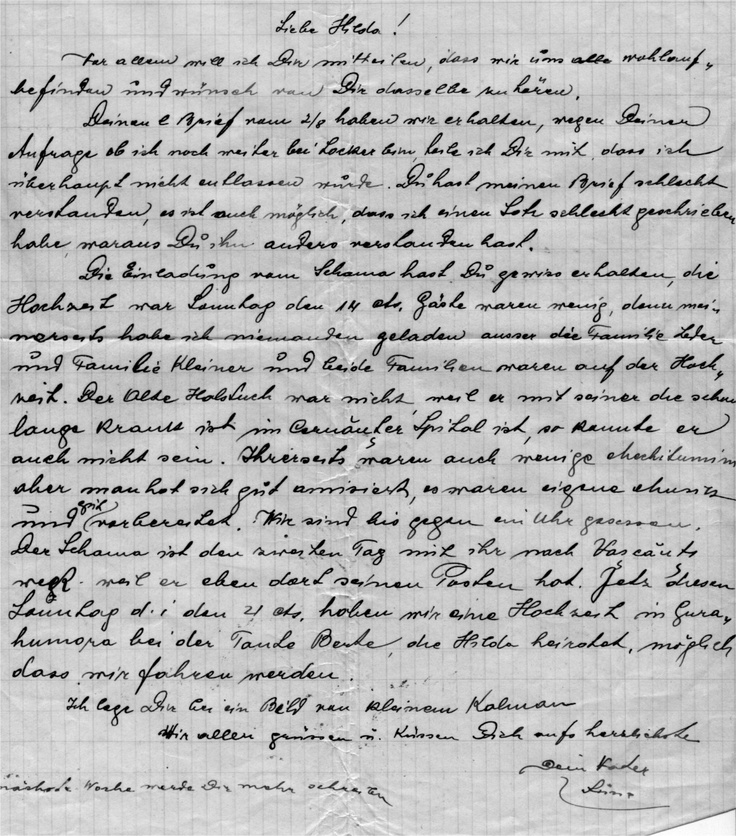 Liebe Hilda!
Vor allem will ich Dir mitteilen, dass wir uns alle wohlauf„
befinden und wünsch von Dir dasselbe zu hören.
Deinen l Brief vom 2/8 haben wir erhalten, wegen Deiner
Anfrage ob ich noch weiter bei Locker bin, teile ich Dir mit, dass ich
überhaupt nicht entlassen würde. Du hast meinen Brief schlecht
verstanden, es ist auch möglich, dass ich einen Satz schlecht geschrieben
habe, woraus Du ihn anders verstanden hast.
Die Einladung vom Schama hast Du gewiss erhalten, die
Hochzeit war Sonntag den 14 cts. Gäste waren wenig, denn mei„
nerseits habe ich niemanden geladen ausser die Familie Leder
und Familie Kleiner und beide Familien waren auf der Hoch„
zeit. Der Alte Holstuch war nicht, weil er mit seiner die schon
lange krank ist im Cernăuter Spital ist, so konnte er
auch nicht sein. Ihrerseits waren auch wenige
aber man hat sich gut amisiert, es waren eigene
und gut vorbereitet. Wir sind bis gegen ein Uhr gesessen.
Der Schama ist den zweiten Tag mit ihr nach Vascăuts
weg. weil er eben dort seinen Posten hat. Jetz diesen
Sonntag d.i den 21 cts. haben wir eine Hochzeit in Gura„
humora bei der Tante Berte, die Hilda heiratet, möglich
dass wir fahren werden.
Ich lege Dir bei ein Bild von kleinem Kalman
Wir allen grüssen u. küssen Dich aufs herzlichste
Dein Vater
nächste Woche werde Dir mehr schreiben